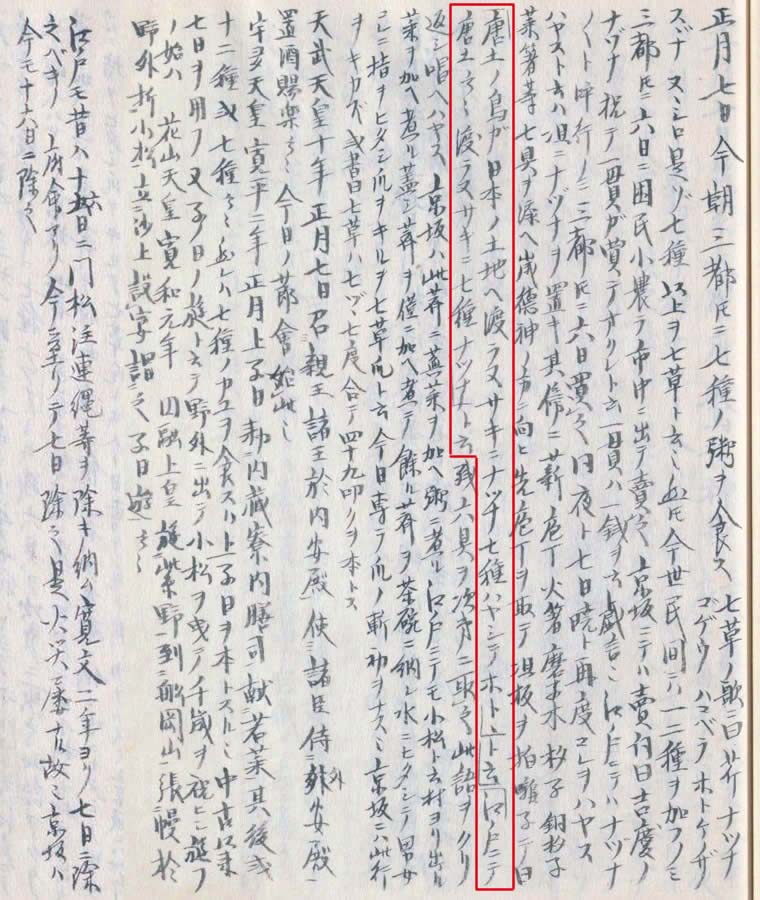 正月七日 今朝三都トモニ七種ノ粥ヲ食ス 七草ノ歌ニ曰芹ナツナ
ゴゲウハコベラホトケノザ
スヾナスヾシロ是ゾ七種 以上ヲ七草ト云也 然トモ今世民間ニハ一二種ヲ加フノミ
三都トモニ六日ニ困民小農ラ市中ニ出テ賣之 京坂ニテハ賣詞曰吉慶ノ
ナヅナ祝テ一貫ガ買テオクレト云一貫ハ一銭ヲ云戯言也江戸ニテハナヅナ
〳〵ト呼行ノミ三都トモニ六日買之同夜ト七日暁ト再度コレヲハヤス
ハヤスト云ハ俎ニナヅナヲ置キ其傍ニ薪庖丁火箸磨子木杓子銅杓子
菜箸等七具ヲ添ヘ歳徳神ノ方ニ向ヒ先庖丁ヲ取テ俎板ヲ拍囃子テ曰
唐土ノ鳥ガ日本ノ土地ヘ渡ラヌサキニナツナ七種ハヤシテホトヽト云江戸ニテ
唐土云々渡ラヌサキニ七種ナツナト云残六具ヲ次第ニ取之此語ヲクリ
返シ唱ヘハヤス 京坂ハ此薺ニ蕪菜ヲ加ヘ粥ニ煮ル 江戸ニテモ小松ト云村ヨリ出ル
菜ヲ加ヘ煮ル 蓋シ薺ヲ僅ニ加ヘ煮テ餘ル薺ヲ茶碗ニ納レ水ニヒタシテ男女
コレニ指ヲヒタシ爪ヲキルヲ七草爪ト云 今日専ラ爪ノ斬初ヲナス也京坂ニハ此行
ヲキカズ或書曰七草ハ七ヅヽ七度合テ四十九叩クヲ本トス
天武天皇十年正月七日召親王諸王於内安殿使諸臣侍外安殿
置酒賜楽云々今日ノ節會始此也
宇多天皇寛平二年正月上子日 勅内蔵寮内膳司献若菜其後或
十二種或七種云々 然レハ七種ノカユヲ食スハ上子日ヲ本トスル也中古以来
七日ヲ用フ又子ノ日ノ遊ト云テ野外ニ出テ小松ヲ曳テ千歳ヲ祝ヒシ遊フ
ノ始ハ 花山天皇寛和元年 円融上皇遊紫野到船岡山張幔於
野外折小松立沙上設宴謂之子日遊云々
江戸モ昔ハ十六日ニ門松注連縄等ヲ除キ納ム寛文二年ヨリ七日ニ除
之ベキノ府命アリ今ニ至リテ七日除之是火災ノ備ナル故也京坂ハ
今モ十六日ニ除之